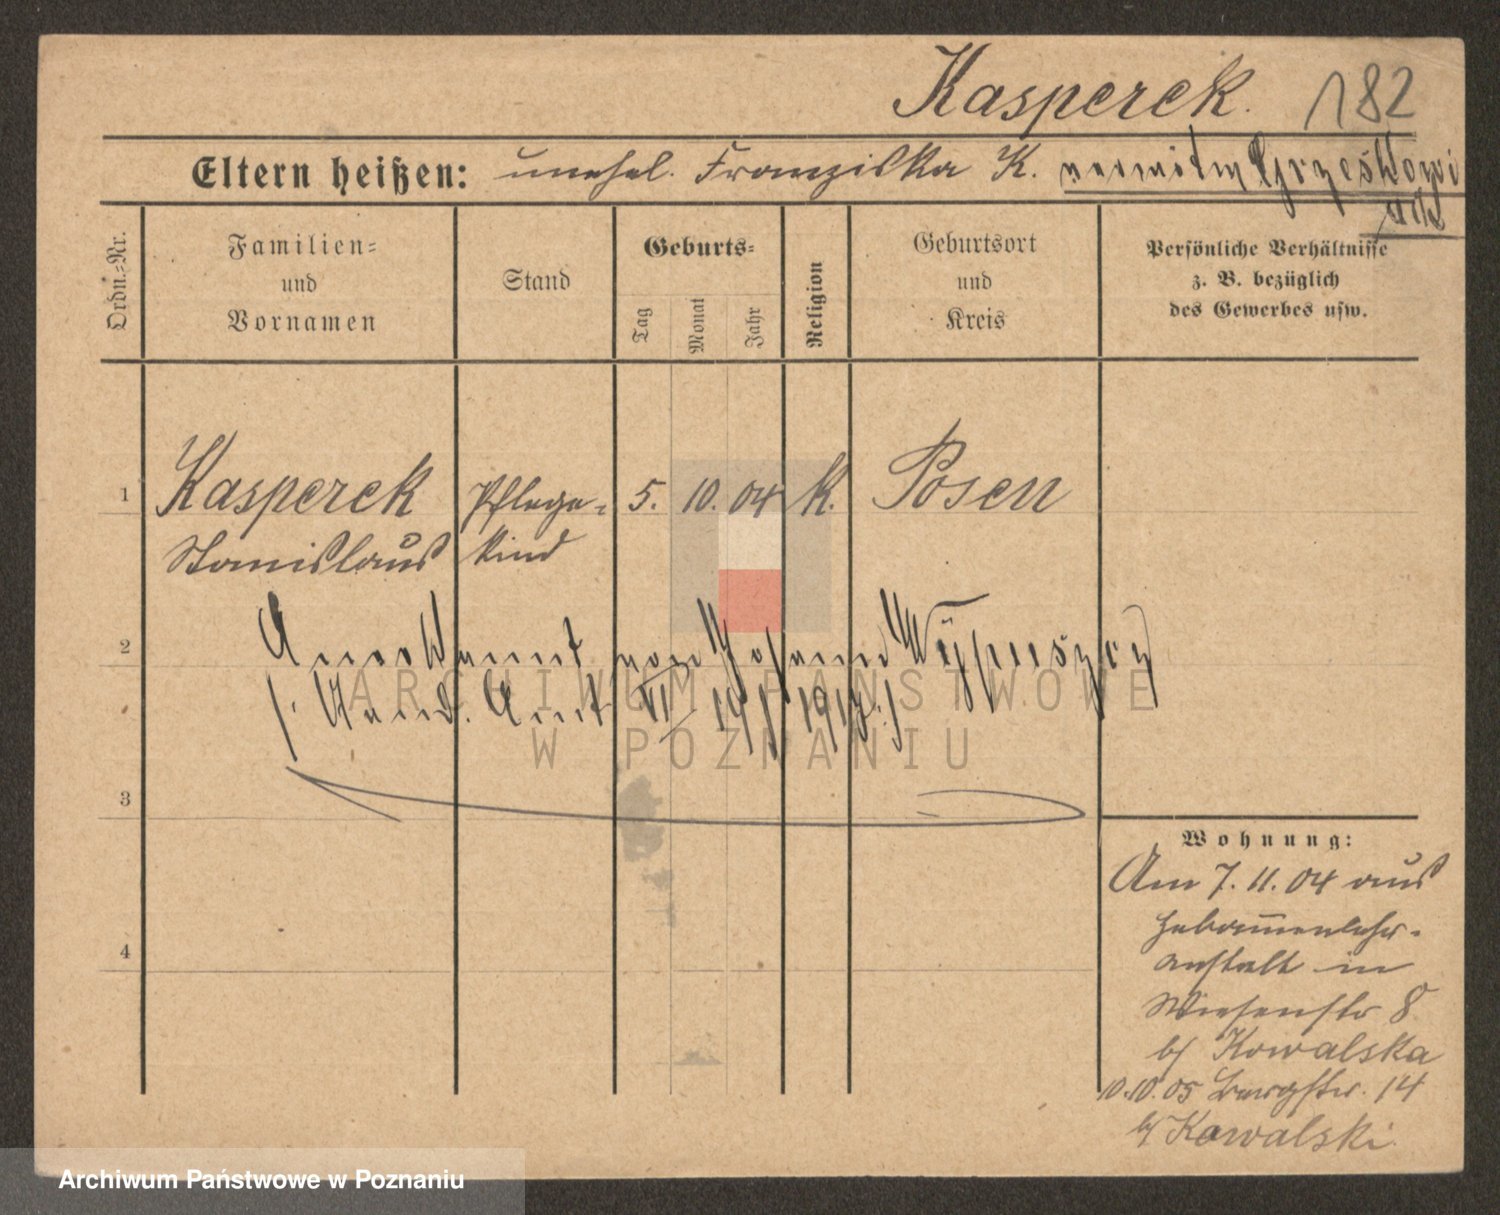 Kasperek. 182
Eltern heißen: unehel. Franziska K. verwitw Grześkowi
ak
Ordn.-Nr.
Familien-
und
Vornamen
Stand
Geburts-
Tag
Monat
Jahr
Religion
Geburtsort
und
Kreis
Persönliche Verhältnisse
z. B. bezüglich
des Gewerbes usw.
1 Kasperek Pflege- 5. 10. 04 K. Posen
Stanislaus kind
2 Anerkannt von Johann
/. Stand. Amt VI 19/
ARCHIWUM PAŃSTWOWE
W POZNANIU
3
4
Wohnung:
Am 7. 11. 04 aus
Hebammenlehr-
anstalt in
Wiesenstr 8
b/ Kowalska
10.10.05 Bergstr. 14
b/ Kowalski.
Archiwum Państwowe w Poznaniu